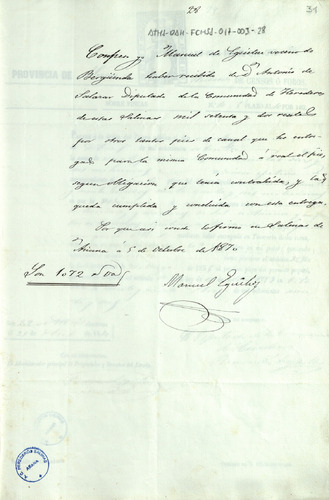 28
31
ATHA-DAH-FCMSA-017-003-28
PROVINCIA DE
Confieso yo Manuel de Eguiluz vecino de
Bergüenda haber recibido de Dn Antonio de
Salazar Diputado de la Comunidad de Herederos
de estas Salinas mil setenta y dos reales
por otros tantos pies de canal que he entre-
gado para la misma Comunidad á real el pie
segun obligacion que tenia contrahida, y la
queda cumplida y concluida con esta entrega.
Por que asi conste lo firmo en Salinas de
Añana á 5 de Octubre de 1870
Son 1072
Manuel Eguiluz
AÑANA